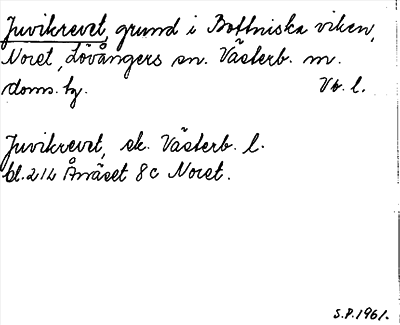 Juvikrevet, grund i Bottniska viken,
Noret, Lövångers sn. Västerb. m.
doms. hg. Vb. l.
Juvikrevet, sk. Västerb. l.
bl. 214 Ånäset 8c Noret.
S.P. 1961.